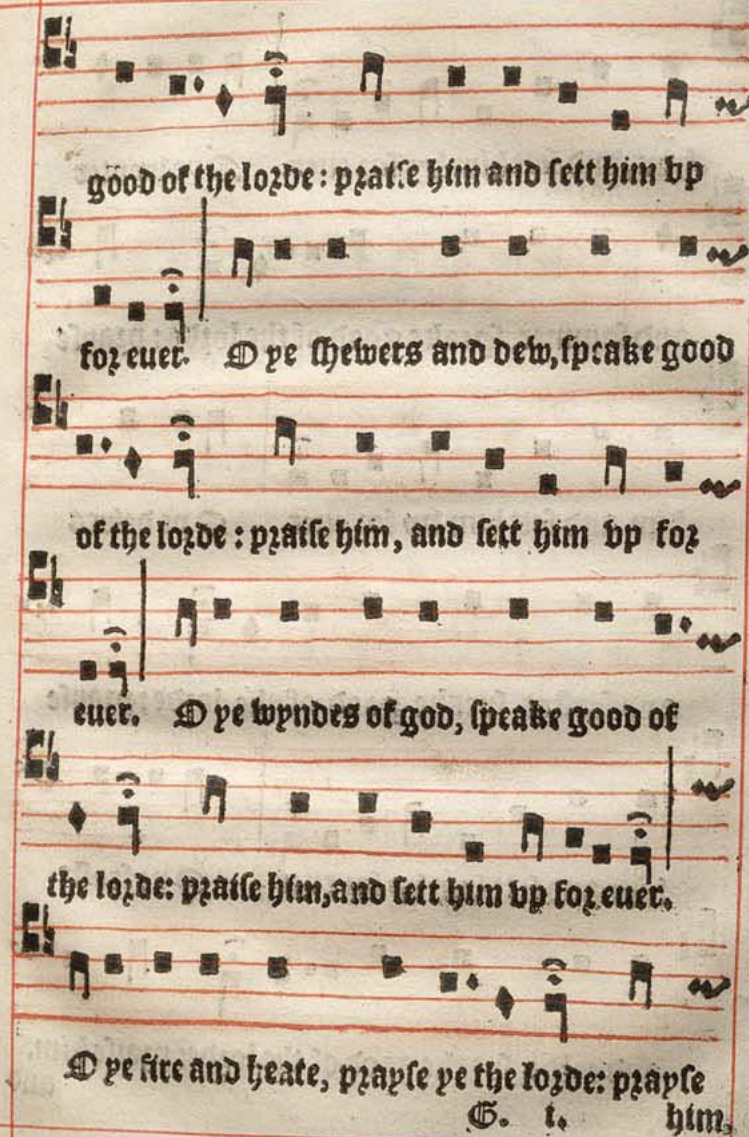 good of the lorde: praise him and sett him vp
for euer. O ye shewers and dew, speake good
of the lorde: praise him, and sett him vp for
euer. O ye wyndes of god, speake good of
the lorde: praise him, and sett him vp for euer.
O ye fire and heate, prayse ye the lorde: prayse
G. i. him,